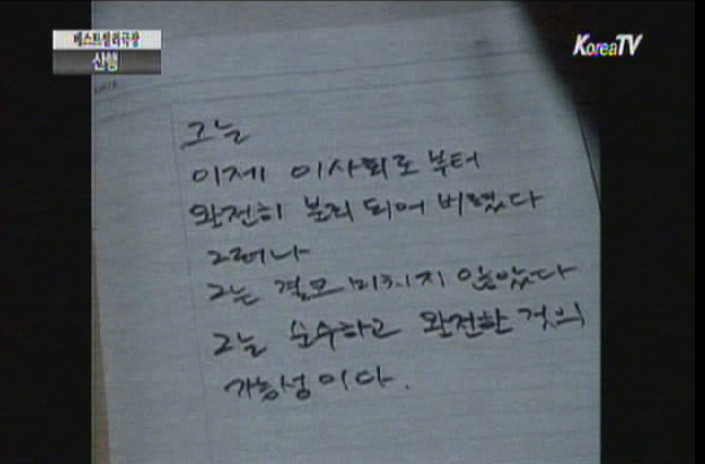 베스트셀러극장
산행
KoreaTV
그는
이제 이사회로 부터
완전히 분리 되어 버렸다
그러나
그는 결코 미치지 않았다
그는 순수하고 완전한 것의
가능성이다.